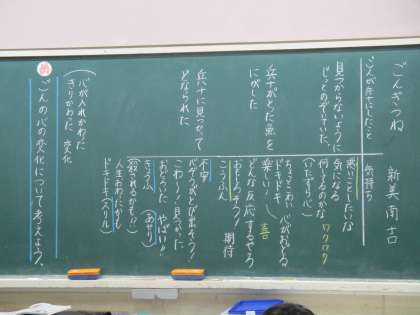 ごんぎつね　新美南吉
ごんが兵十にしたこと　気持ち
見つからないように
じっとのぞいていた。
悪いことしたいな
気になる
何してるのかな　ワクワク
(いたずら心)
兵十がとった魚を
にがした
ちょっとこわい　心がおどる
ドキドキ
楽しい!　喜
どんな反応するやろ
おもしろそう!　期待
こうふん
兵十に見つかって
どなられた
不安
こわーい!見つかった
おどろいた　やばい!!
きょうふ　(あせり)
(殺されるかも!!)
人生おわったかも
ドキドキ(ヘリル)
(心が入れかわった
きりかわった　変化
ごんの心の変化について考えよう。